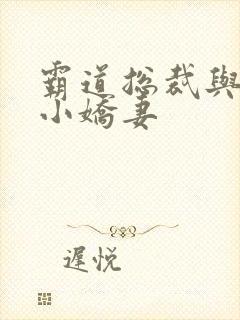 霸道總裁與
小嬌妻
遲悅